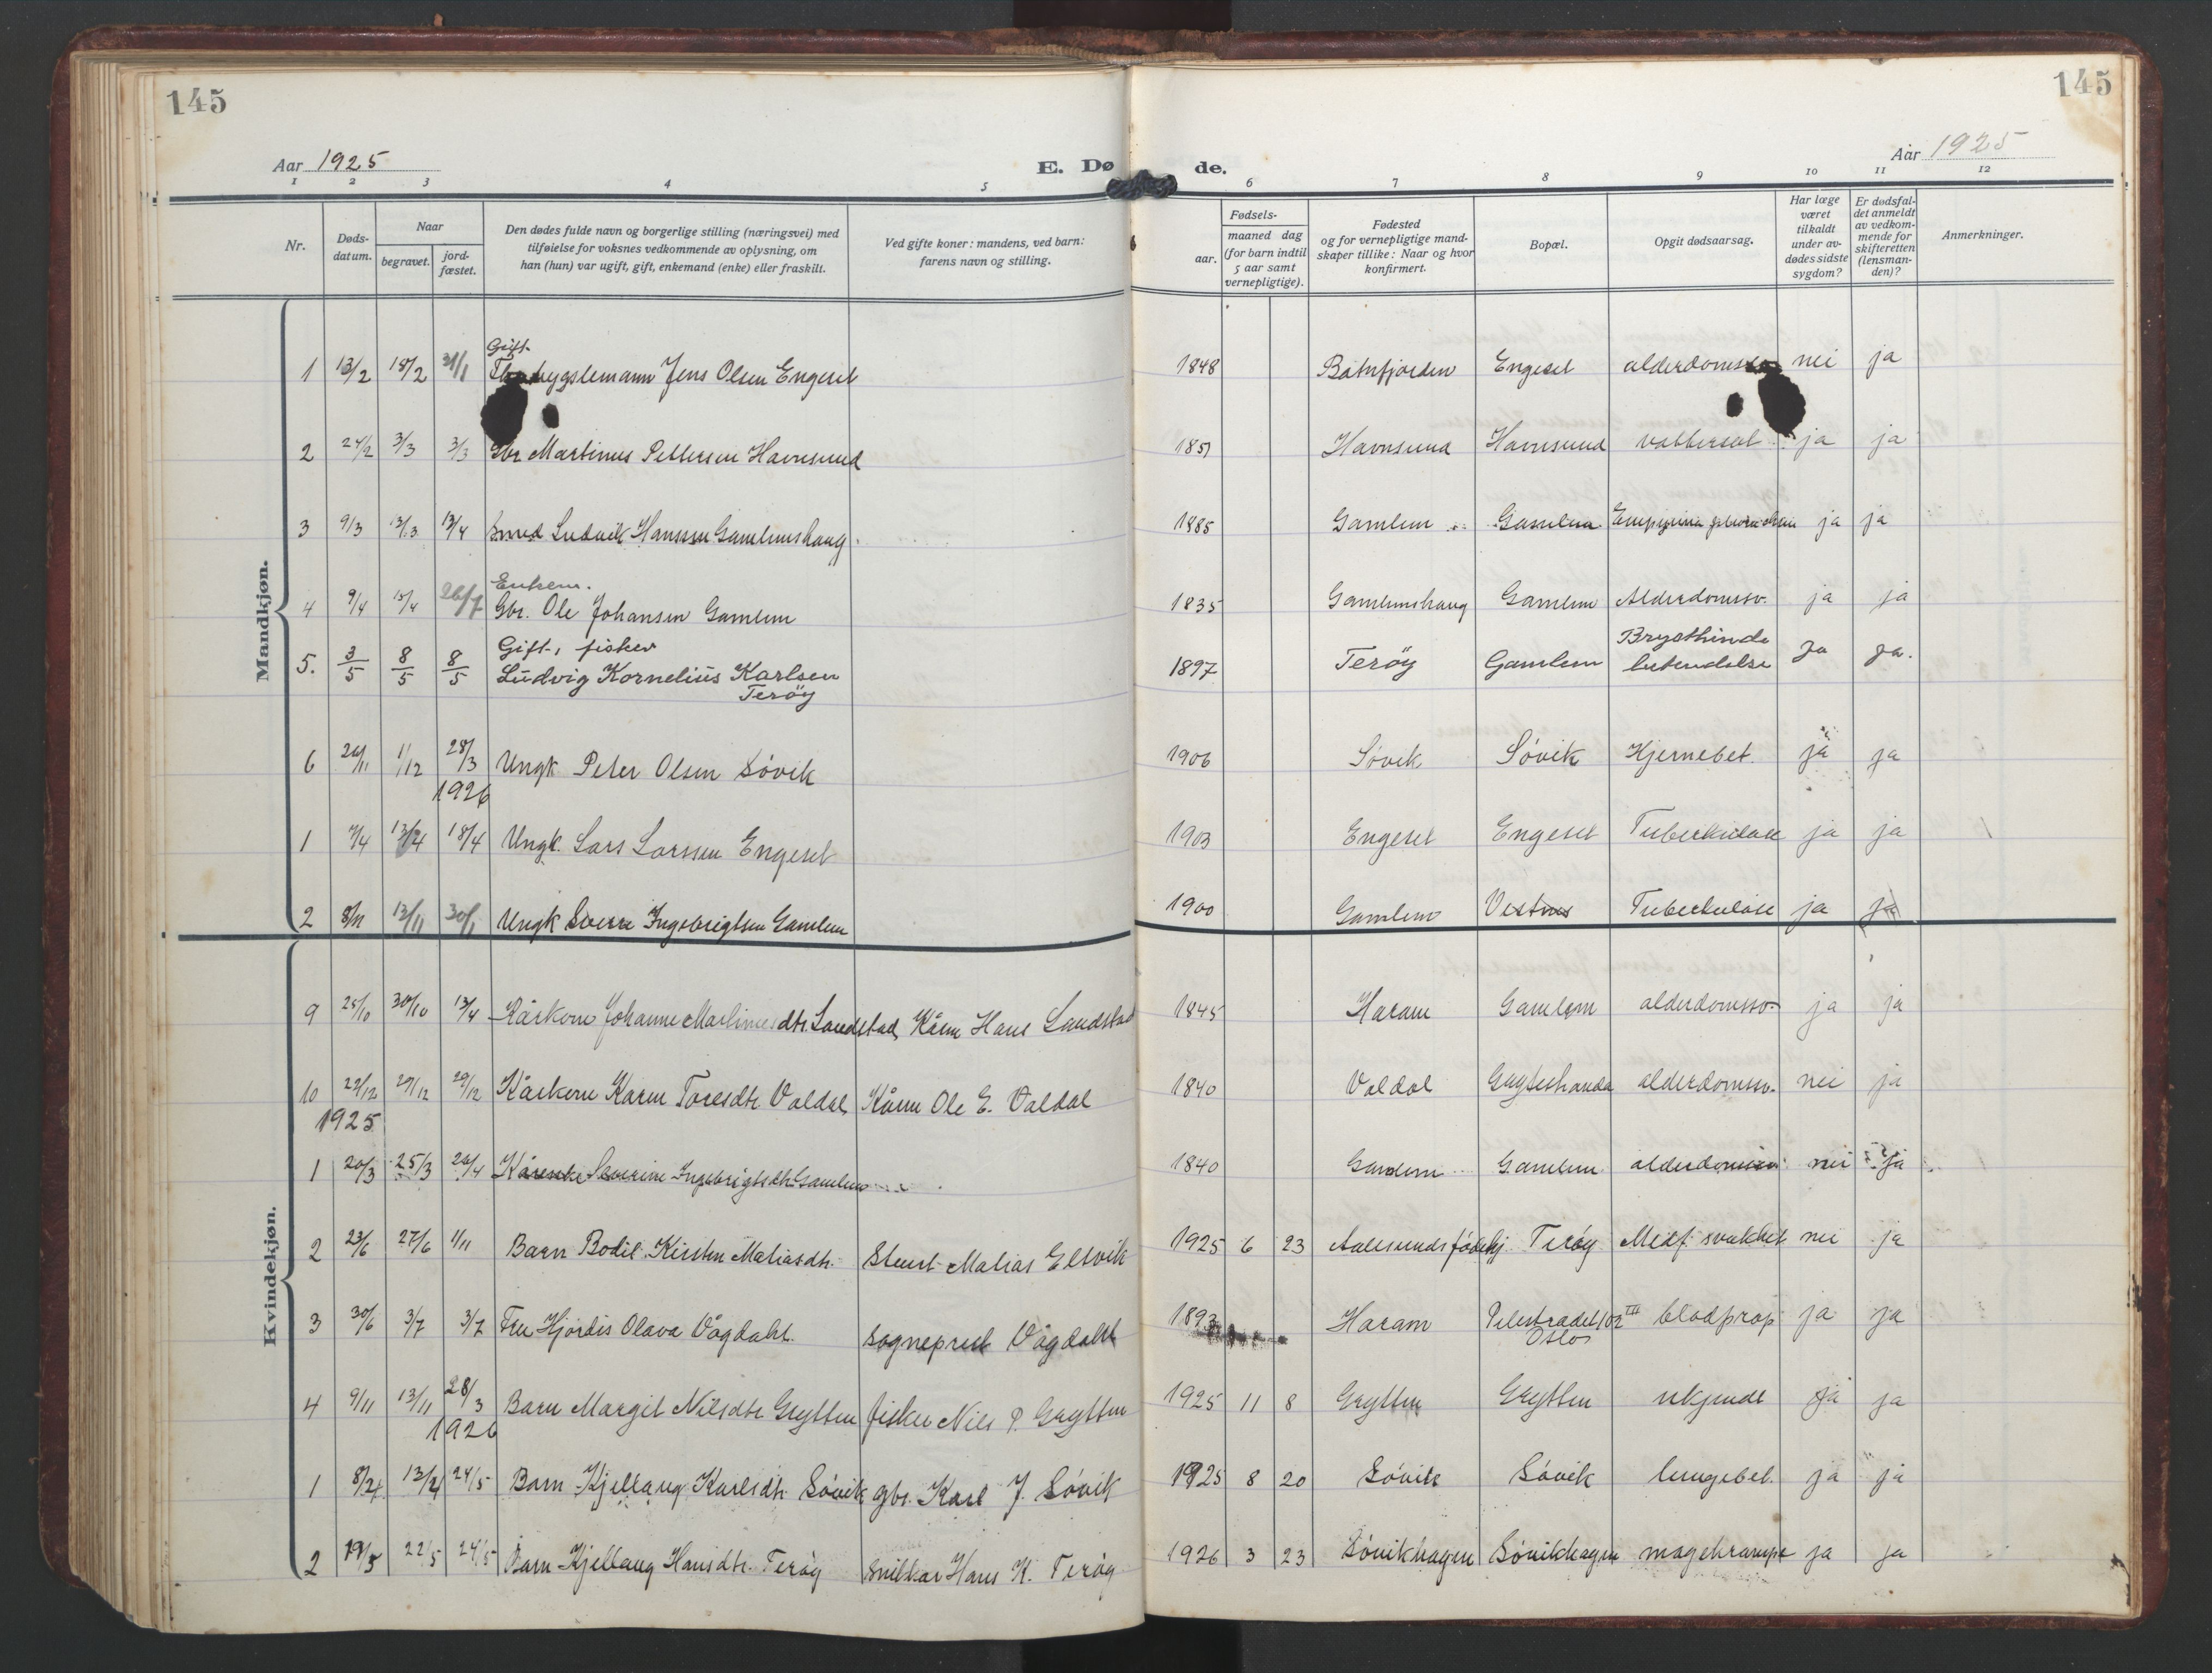 145
145
Aar 1925
E. Dø
de.
Aar 1925
1 2 3 4 5 6 7 8 9 10 11 12
Nr.
Døds-
datum.
Naar
begravet.
jord-
fæstet.
Den dødes fulde navn og borgerlige stilling (næringsvei) med
tilføielse for voksnes vedkommende av oplysning, om
han (hun) var ugift, gift, enkemand (enke) eller fraskilt.
Ved gifte koner: mandens, ved barn:
farens navn og stilling.
Fødsels-
aar.
maaned dag
(for barn indtil
5 aar samt
vernepligtige).
Fødested
og for vernepligtige mand-
skaper tillike: Naar og hvor
konfirmert.
Bopæl.
Opgit dødsaarsag.
Har læge
været
tilkaldt
under av-
dødes sidste
sygdom?
Er dødsfal-
det anmeldt
av vedkom-
mende for
skifteretten
(lensman-
den)?
Anmerkninger.
Mandkjøn.
Gift
1 13/2 18/2 31/1 Jens Olsen Engeset 1848 Batnfjorden Engeset nei ja
2 24/2 3/3 3/3 Gbr Martinus Pettersen Havnsund 1851 Havnsund Havnsund vattersot ja ja
3 9/3 13/3 13/4 Smed Ludvik Hanssen Gamlemshaug 1885 Gamlem Gamlem ja ja
Enkem.
4 9/4 15/4 26/7 Gbr. Ole Johansen Gamlem 1835 Gamlemshaug Gamlem Alderdomssv. ja ja
Gift, fisker Brysthinde
5. 3/5 8/5 8/5 Ludvig Kornelius Karlsen 1897 Terøy Gamlem betendelse ja ja.
Terøy
6 24/11 1/12 28/3 Ungk Peter Olsen Søvik 1906 Søvik Søvik Hjernebet. ja ja
1926
1 7/4 13/4 18/4 Ungk. Lars Larssen Engeset 1903 Engeset Engeset Tuberkulose ja ja 1
2 8/11 13/11 30/1 Ungk Sverre Ingebrigtsen Gamlem 1900 Gamlem Vestnes Tuberkulose ja ja
Kvindekjøn.
9 25/10 30/10 13/4 Kårkone Johanne Martinusdtr. Landstad Kårm Hans Landstad 1845 Haram Gamlem alderdomssv. ja ja
10 22/12 29/12 29/12 Kårkone Karen Toresdtr Valdal Kårm Ole E. Valdal 1840 Valdal Grytestranda alderdomssv. nei ja
1925
1 20/3 25/3 20/4 Kårenke Severine Ingebrigtsdtr Gamlem 1840 Gamlem Gamlem nei ja
2 23/6 27/6 1/11 Barn Bodil Kirsten Matiasdtr. Stuert Matias Elsvik 1925 6 23 Aalesunds fødehj. Terøy Medf. svakhet nei ja
3 30/6 3/7 3/7 Fru Hjørdis Olava Vågdahl. Sogneprest Vågdahl 1893 Haram Pilestradet 102 III blodprop ja ja
Oslo
4 9/11 13/11 28/3 Barn Margit Nilsdtr Grytten fisker Nils P. Grytten 1925 11 8 Grytten Grytten ukjendt ja ja
1926
1 8/4 13/4 24/5 Barn Kjellaug Karlsdtr. Søvik gbr. Karl J. Søvik 1925 8 20 Søvik Søvik lungebet. ja ja
2 19/5 22/5 24/5 Barn Kjellaug Hansdtr. Terøy Snikkar Hans K. Terøy 1926 3 23 Søvikhagen Søvikhagen magekrampe ja ja